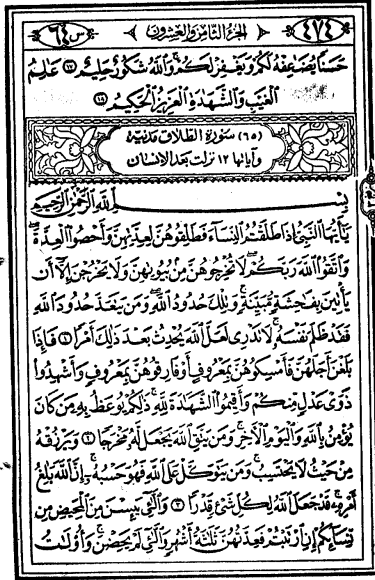 ٤٧٤ الجزء الثامن والعشرون س ٦٤
حَسَنًا يُضَٰعِفْهُ لَكُمْ وَيَغْفِرْ لَكُمْ ۚ وَٱللَّهُ شَكُورٌ حَلِيمٌ ١٧ عَٰلِمُ
ٱلْغَيْبِ وَٱلشَّهَٰدَةِ ٱلْعَزِيزُ ٱلْحَكِيمُ ١٨
(٦٥) سُورَة الطَّلَاق مَدَنِيَّة
وآياتها ١٢ نزلت بعد الانسان
بِسْمِ ٱللَّهِ ٱلرَّحْمَٰنِ ٱلرَّحِيمِ
يَٰٓأَيُّهَا ٱلنَّبِيُّ إِذَا طَلَّقْتُمُ ٱلنِّسَآءَ فَطَلِّقُوهُنَّ لِعِدَّتِهِنَّ وَأَحْصُوا۟ ٱلْعِدَّةَ ۖ
وَٱتَّقُوا۟ ٱللَّهَ رَبَّكُمْ ۖ لَا تُخْرِجُوهُنَّ مِنۢ بُيُوتِهِنَّ وَلَا يَخْرُجْنَ إِلَّآ أَن
يَأْتِينَ بِفَٰحِشَةٍ مُّبَيِّنَةٍ ۚ وَتِلْكَ حُدُودُ ٱللَّهِ ۚ وَمَن يَتَعَدَّ حُدُودَ ٱللَّهِ
فَقَدْ ظَلَمَ نَفْسَهُۥ ۚ لَا تَدْرِى لَعَلَّ ٱللَّهَ يُحْدِثُ بَعْدَ ذَٰلِكَ أَمْرًا ١ فَإِذَا
بَلَغْنَ أَجَلَهُنَّ فَأَمْسِكُوهُنَّ بِمَعْرُوفٍ أَوْ فَارِقُوهُنَّ بِمَعْرُوفٍ وَأَشْهِدُوا۟
ذَوَىْ عَدْلٍ مِّنكُمْ وَأَقِيمُوا۟ ٱلشَّهَٰدَةَ لِلَّهِ ۚ ذَٰلِكُمْ يُوعَظُ بِهِۦ مَن كَانَ
يُؤْمِنُ بِٱللَّهِ وَٱلْيَوْمِ ٱلْءَاخِرِ ۚ وَمَن يَتَّقِ ٱللَّهَ يَجْعَل لَّهُۥ مَخْرَجًا ٢ وَيَرْزُقْهُ
مِنْ حَيْثُ لَا يَحْتَسِبُ ۚ وَمَن يَتَوَكَّلْ عَلَى ٱللَّهِ فَهُوَ حَسْبُهُۥٓ ۚ إِنَّ ٱللَّهَ بَٰلِغُ
أَمْرِهِۦ ۚ قَدْ جَعَلَ ٱللَّهُ لِكُلِّ شَىْءٍ قَدْرًا ٣ وَٱلَّٰٓـِٔى يَئِسْنَ مِنَ ٱلْمَحِيضِ مِن
نِّسَآئِكُمْ إِنِ ٱرْتَبْتُمْ فَعِدَّتُهُنَّ ثَلَٰثَةُ أَشْهُرٍ وَٱلَّٰٓـِٔى لَمْ يَحِضْنَ ۚ وَأُو۟لَٰتُ